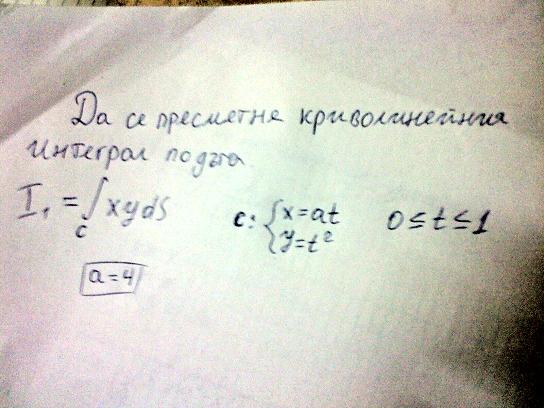 Да се пресметне криволинейния
интеграл по дъга
I₁ = ∫ xyds c: { x=at 0≤t≤1
c y=t²
a=4